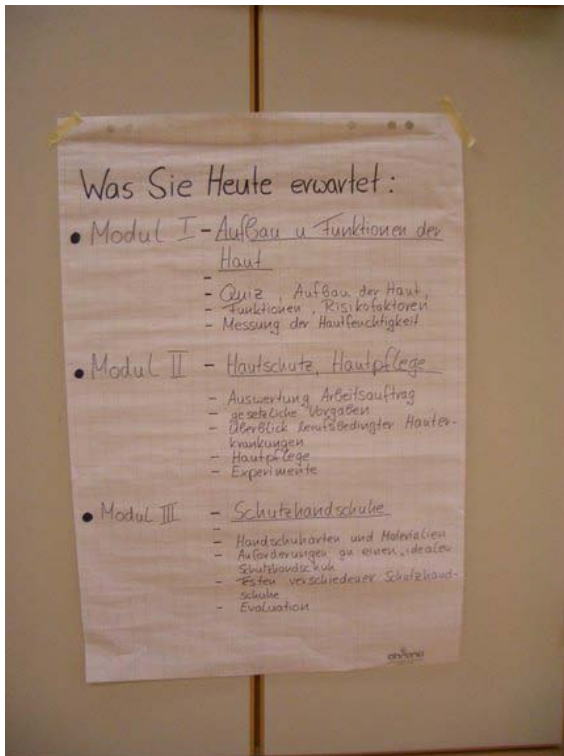 Was Sie Heute erwartet:
• Modul I - Aufbau u Funktionen der
Haut
-
- Quiz, Aufbau der Haut,
- Funktionen, Risikofaktoren
- Messung der Hautfeuchtigkeit
• Modul II - Hautschutz, Hautpflege
- Auswertung Arbeitsauftrag
- gesetzliche Vorgaben
- Überblick berufsbedingter Hauter-
krankungen
- Hautpflege
- Experimente
• Modul III - Schutzhandschuhe
-
- Handschuharten und Materialien
- Anforderungen an einen „idealen
Schutzhandschuh
- Testen verschiedener Schutzhand-
schuhe
- Evaluation